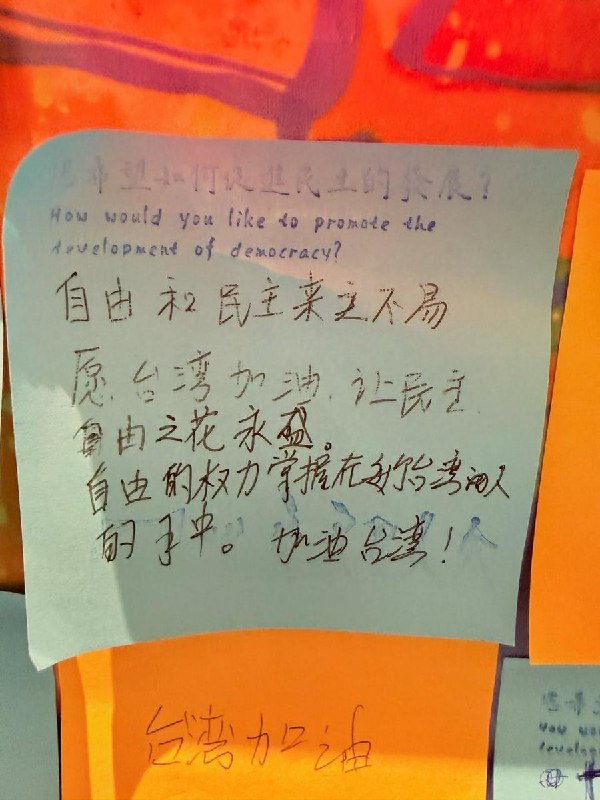 您希望如何促進民主的發展?
How would you like to promote the
development of democracy?
自由和民主来之不易
愿台湾加油,让民主
自由之花永盛。
自由的权力掌握在 台湾 人
的手中。加油台湾!
台湾加油
How wou
develop